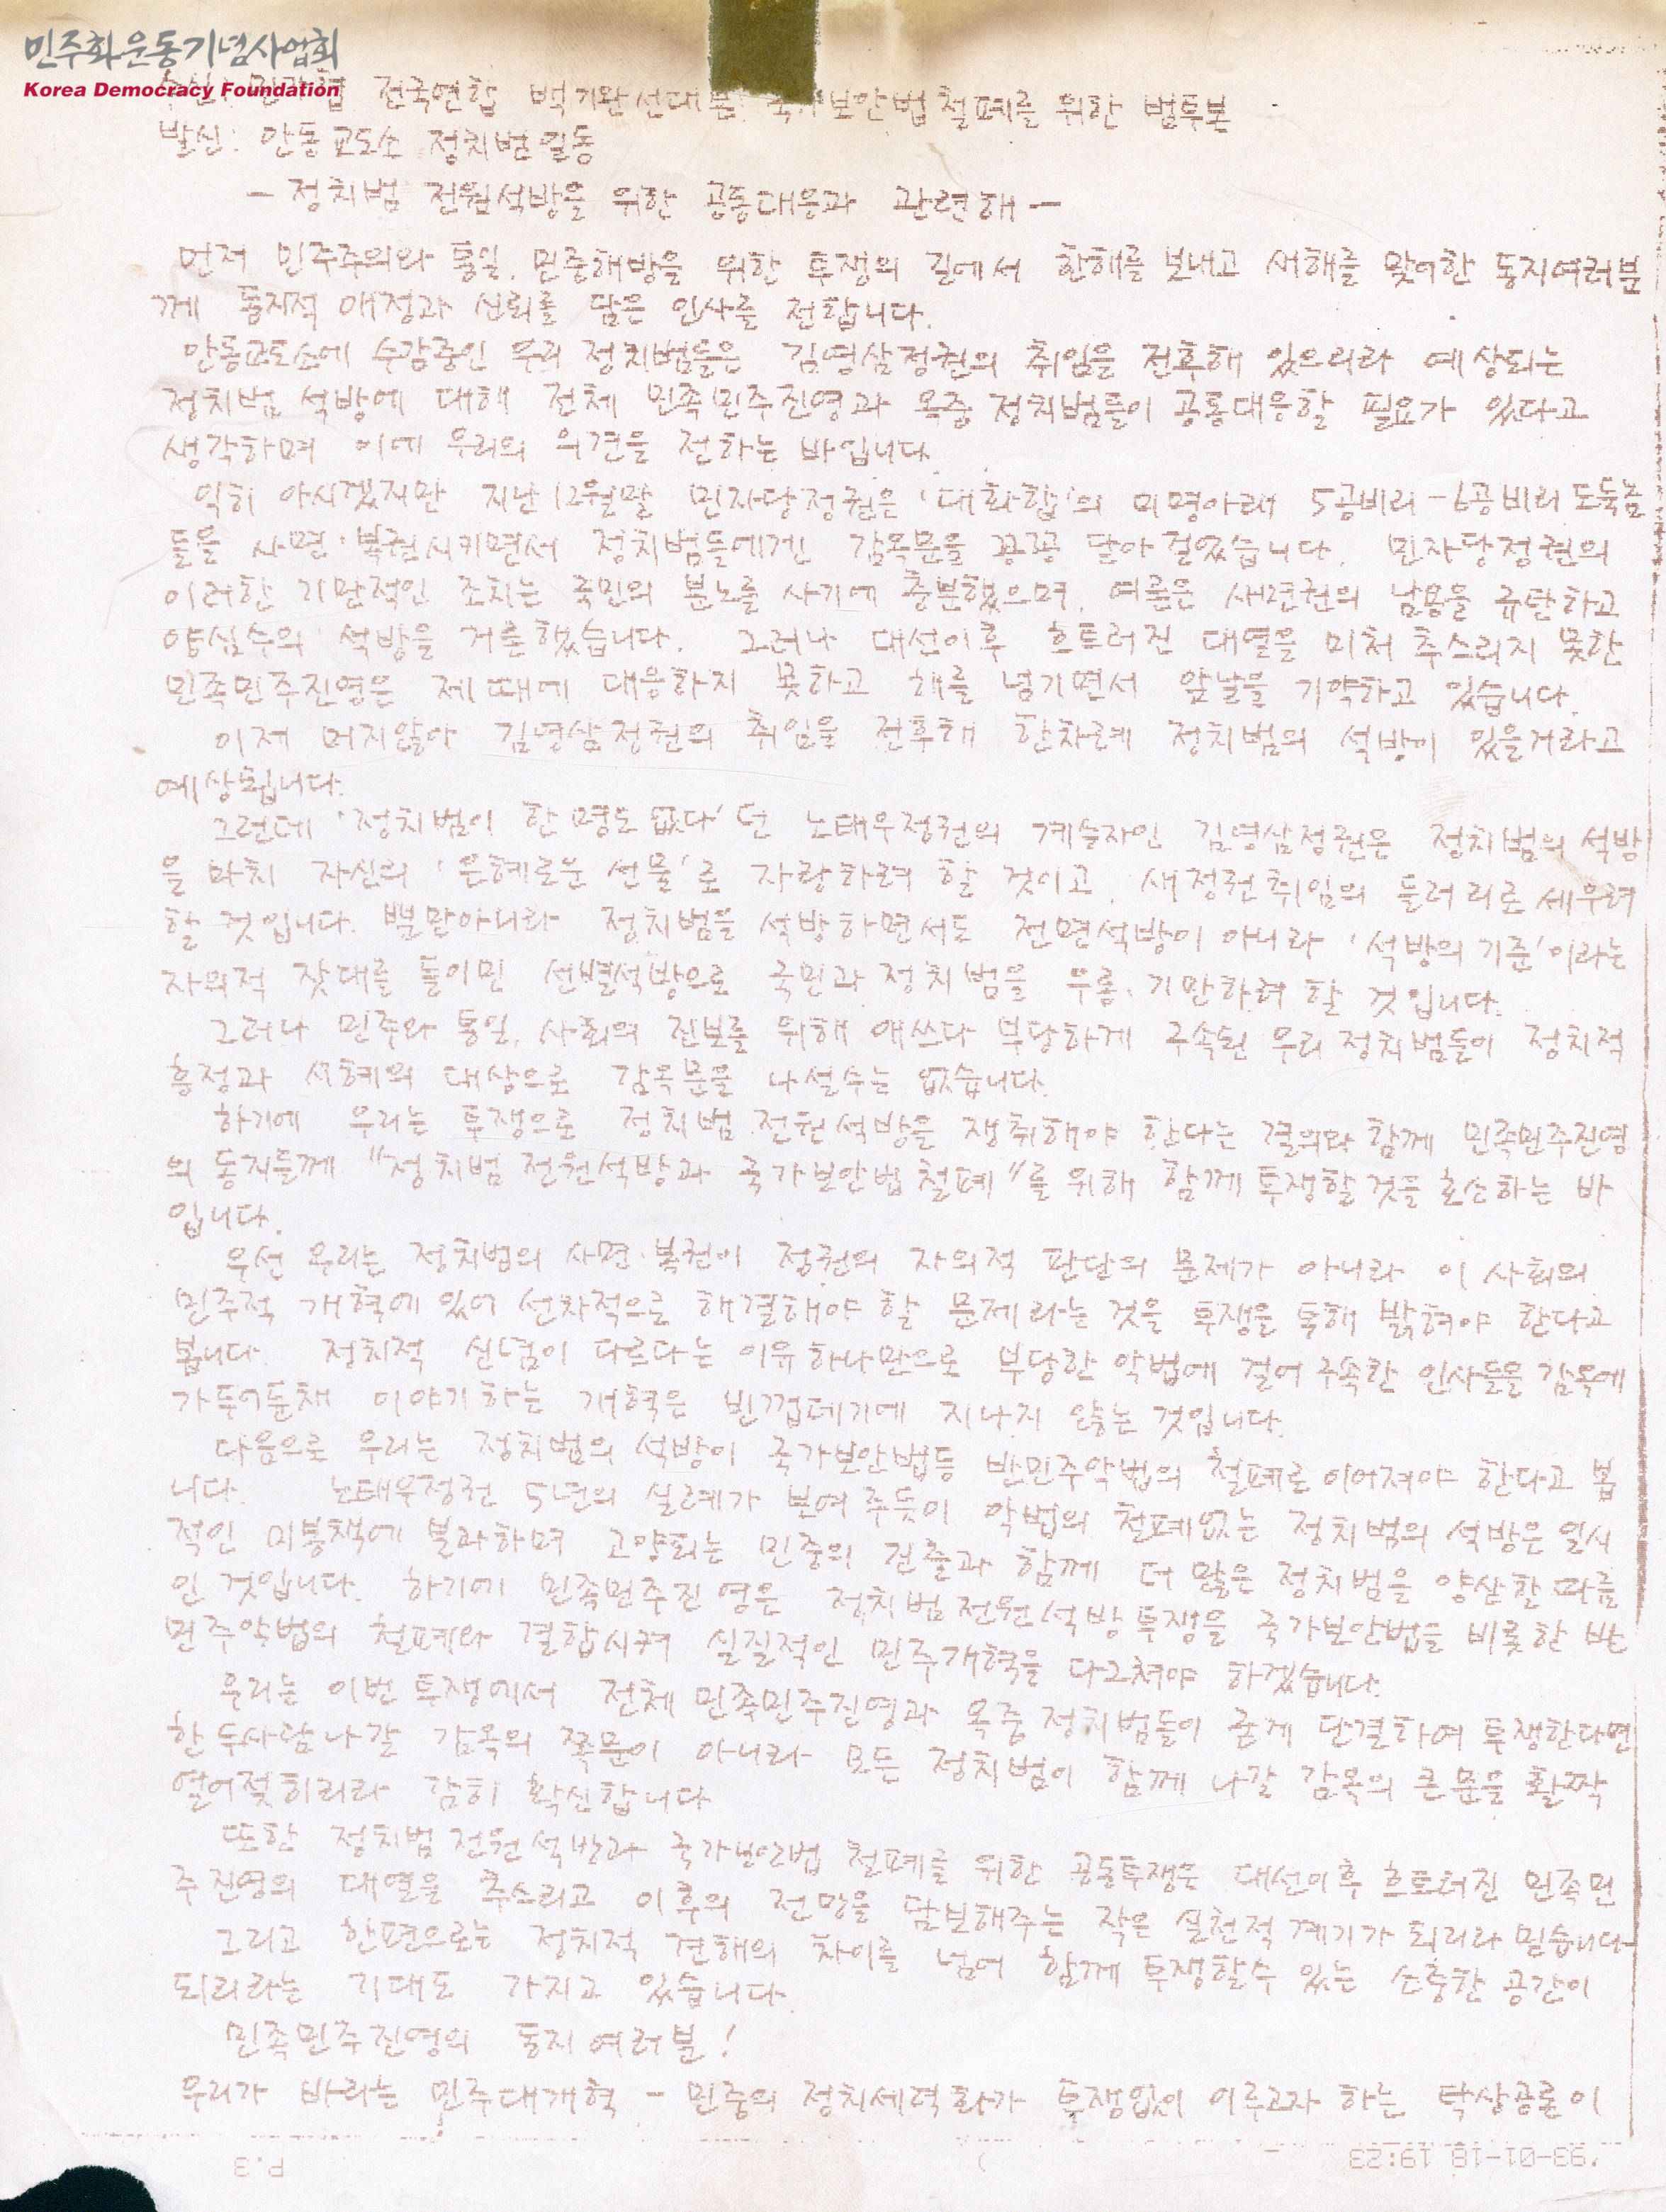 민주화운동기념사업회
Korea Democracy Foundation
전국연합 백기완선대본 국가보안법철폐를 위한 범투본
발신: 안동교도소 정치범일동
- 정치범 전원석방을 위한 공동대응과 관련해 -
먼저 민주주의와 통일, 민중해방을 위한 투쟁의 길에서 한해를 보내고 새해를 맞이한 동지여러분
께 동지적 애정과 신뢰를 담은 인사를 전합니다.
안동교도소에 수감중인 우리 정치범들은 김영삼정권의 취임을 전후해 있으리라 예상되는
정치범 석방에 대해 전체 민족민주진영과 옥중 정치범들이 공동대응할 필요가 있다고
생각하며 이에 우리의 의견을 전하는 바입니다.
익히 아시겠지만 지난 12월말 민자당정권은 '대화합'의 미명아래 5공비리-6공비리 도둑놈
들을 사면·복권시키면서 정치범들에게는 감옥문을 꽁꽁 닫아 걸었습니다. 민자당정권의
이러한 기만적인 조치는 국민의 분노를 사기에 충분했으며, 여론은 사면권의 남용을 규탄하고
양심수의 석방을 거론했습니다. 그러나 대선이후 흐트러진 대열을 미처 추스리지 못한
민족민주진영은 제때에 대응하지 못하고 해를 넘기면서 앞날을 기약하고 있습니다.
이제 머지않아 김영삼정권의 취임을 전후해 한차례 정치범의 석방이 있을거라고
예상됩니다.
그런데 '정치범이 한명도 없다'던 노태우정권의 계승자인 김영삼정권은 정치범의 석방
을 마치 자신의 '은혜로운 선물'로 자랑하려 할 것이고, 새정권취임의 들러리로 세우려
할 것입니다. 뿐만아니라 정치범을 석방하면서도 전면석방이 아니라 '석방의 기준'이라는
자의적 잣대를 들이민 선별석방으로 국민과 정치범을 우롱, 기만하려 할 것입니다.
그러나 민주와 통일, 사회의 진보를 위해 애쓰다 부당하게 구속된 우리 정치범들이 정치적
흥정과 시혜의 대상으로 감옥문을 나설수는 없습니다.
하기에 우리는 투쟁으로 정치범 전원석방을 쟁취해야 한다는 결의와 함께 민족민주진영
의 동지들께 "정치범 전원석방과 국가보안법 철폐"를 위해 함께 투쟁할것을 호소하는 바
입니다.
우선 우리는 정치범의 사면·복권이 정권의 자의적 판단의 문제가 아니라 이 사회의
민주적 개혁에 있어 선차적으로 해결해야 할 문제라는 것을 투쟁을 통해 밝혀야 한다고
봅니다. 정치적 신념이 다르다는 이유 하나만으로 부당한 악법에 걸어 구속한 인사들을 감옥에
가두어둔채 이야기하는 개혁은 빈껍데기에 지나지 않는 것입니다.
다음으로 우리는 정치범의 석방이 국가보안법등 반민주악법의 철폐로 이어져야 한다고 봅
니다. 노태우정권 5년의 실례가 보여 주듯이 악법의 철폐없는 정치범의 석방은 일시
적인 미봉책에 불과하며 고양되는 민중의 진출과 함께 더 많은 정치범을 양산할 따름
인 것입니다. 하기에 민족민주진영은 정치범 전원석방 투쟁을 국가보안법을 비롯한 반
민주악법의 철폐와 결합시켜 실질적인 민주개혁을 다그쳐야 하겠습니다.
우리는 이번 투쟁에서 전체 민족민주진영과 옥중 정치범들이 굳게 단결하여 투쟁한다면
한두사람 나갈 감옥의 쪽문이 아니라 모든 정치범이 함께 나갈 감옥의 큰 문을 활짝
열어젖히리라 감히 확신합니다
또한 정치범 전원석방과 국가보안법 철폐를 위한 공동투쟁은 대선이후 흐트러진 민족민
주진영의 대열을 추스리고 이후의 전망을 담보해주는 작은 실천적 계기가 되리라 믿습니다.
그리고 한편으로는 정치적 견해의 차이를 넘어 함께 투쟁할수 있는 소중한 공간이
되리라는 기대도 가지고 있습니다.
민족민주진영의 동지여러분!
우리가 바라는 민주대개혁 - 민중의 정치세력화가 투쟁없이 이루고자 하는 탁상공론이
'93-01-18 19:23
P.3